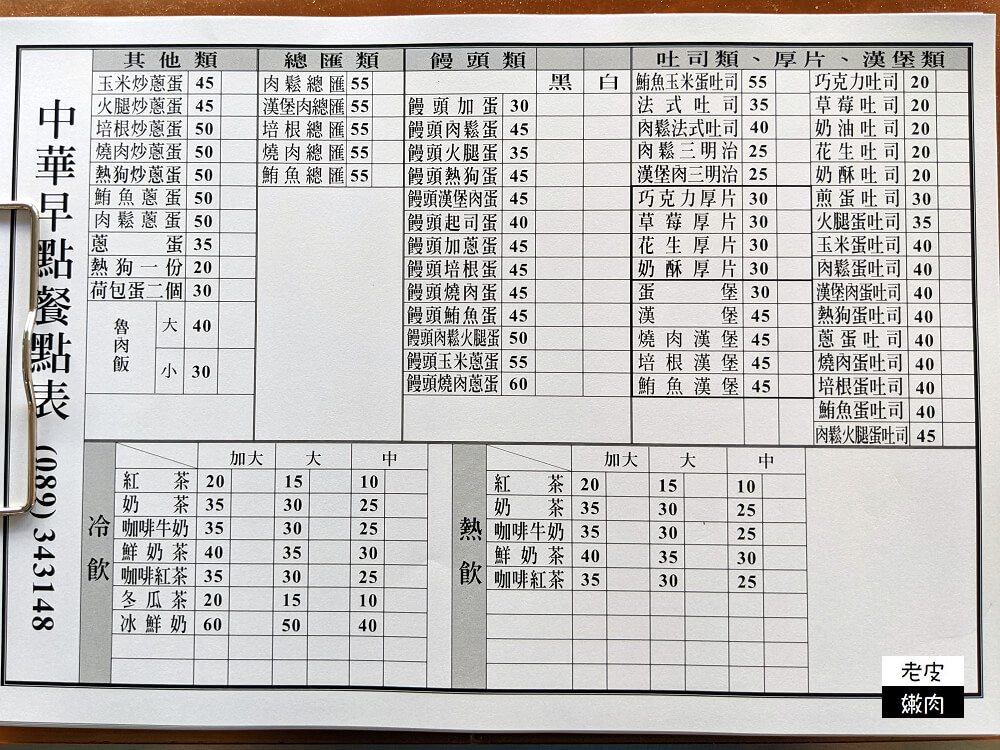 中華早點餐點表 (089)343148
其他類
玉米炒蔥蛋 45
火腿炒蔥蛋 45
培根炒蔥蛋 50
燒肉炒蔥蛋 50
熱狗炒蔥蛋 50
鮪魚蔥蛋 50
肉鬆蔥蛋 50
蔥蛋 35
熱狗一份 20
荷包蛋二個 30
魯肉飯 大 40
小 30
總匯類
肉鬆總匯 55
漢堡肉總匯 55
培根總匯 55
燒肉總匯 55
鮪魚總匯 55
饅頭類
黑 白
饅頭加蛋 30
饅頭肉鬆蛋 45
饅頭火腿蛋 35
饅頭熱狗蛋 45
饅頭漢堡肉蛋 45
饅頭起司蛋 40
饅頭加蔥蛋 45
饅頭培根蛋 45
饅頭燒肉蛋 45
饅頭鮪魚蛋 45
饅頭肉鬆火腿蛋 50
饅頭玉米蔥蛋 55
饅頭燒肉蔥蛋 60
吐司類、厚片、漢堡類
鮪魚玉米蛋吐司 55
法式吐司 35
肉鬆法式吐司 40
肉鬆三明治 25
漢堡肉三明治 25
巧克力厚片 30
草莓厚片 30
花生厚片 30
奶酥厚片 30
蛋堡 30
漢堡 45
燒肉漢堡 45
培根漢堡 45
鮪魚漢堡 45
巧克力吐司 20
草莓吐司 20
奶油吐司 20
花生吐司 20
奶酥吐司 20
煎蛋吐司 30
火腿蛋吐司 35
玉米蛋吐司 40
肉鬆蛋吐司 40
漢堡肉蛋吐司 40
熱狗蛋吐司 40
蔥蛋吐司 40
燒肉蛋吐司 40
培根蛋吐司 40
鮪魚蛋吐司 40
肉鬆火腿蛋吐司 45
冷飲
加大 大 中
紅茶 20 15 10
奶茶 35 30 25
咖啡牛奶 35 30 25
鮮奶茶 40 35 30
咖啡紅茶 35 30 25
冬瓜茶 20 15 10
冰鮮奶 60 50 40
熱飲
加大 大 中
紅茶 20 15 10
奶茶 35 30 25
咖啡牛奶 35 30 25
鮮奶茶 40 35 30
咖啡紅茶 35 30 25
老皮
嫩肉